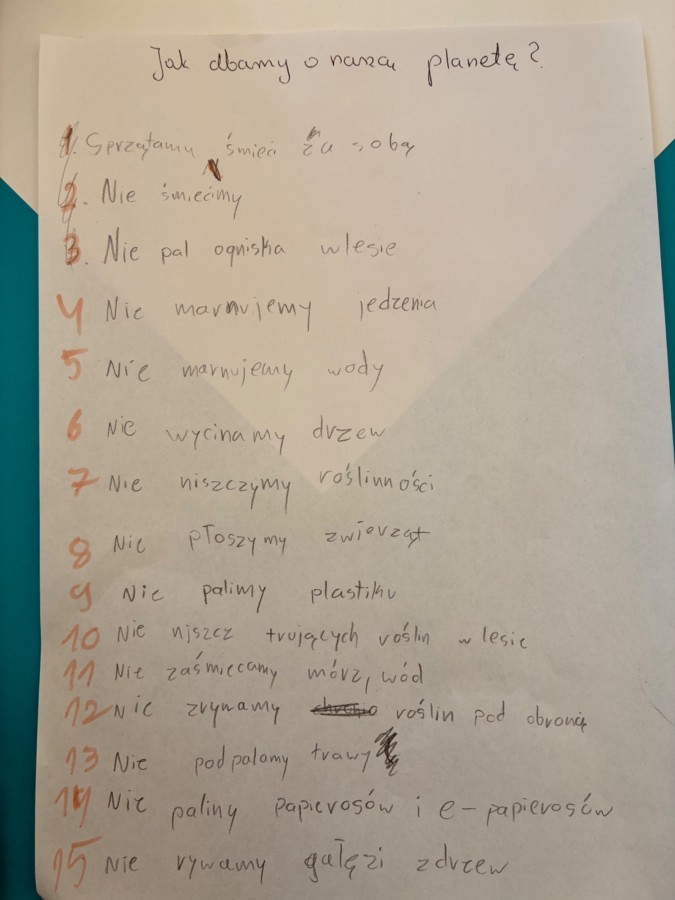 Jak dbamy o naszą planetę?
1. Sprzątamy śmieci za sobą
2. Nie śmiecimy
3. Nie pal ogniska wlesie
4 Nie marnujemy jedzenia
5 Nie marnujemy wody
6 Nie wycinamy drzew
7 Nie niszczymy roślinności
8 Nie płoszymy zwierząt
9 Nie palimy plastiku
10 Nie niszcz trujących roślin w lesie
11 Nie zaśmiecamy mórz, wód
12 Nie zrywamy roślin pod obroną
13 Nie podpalamy trawy
14 Nie palimy papierosów i e-papierosów
15 Nie rywamy gałęzi zdrzew